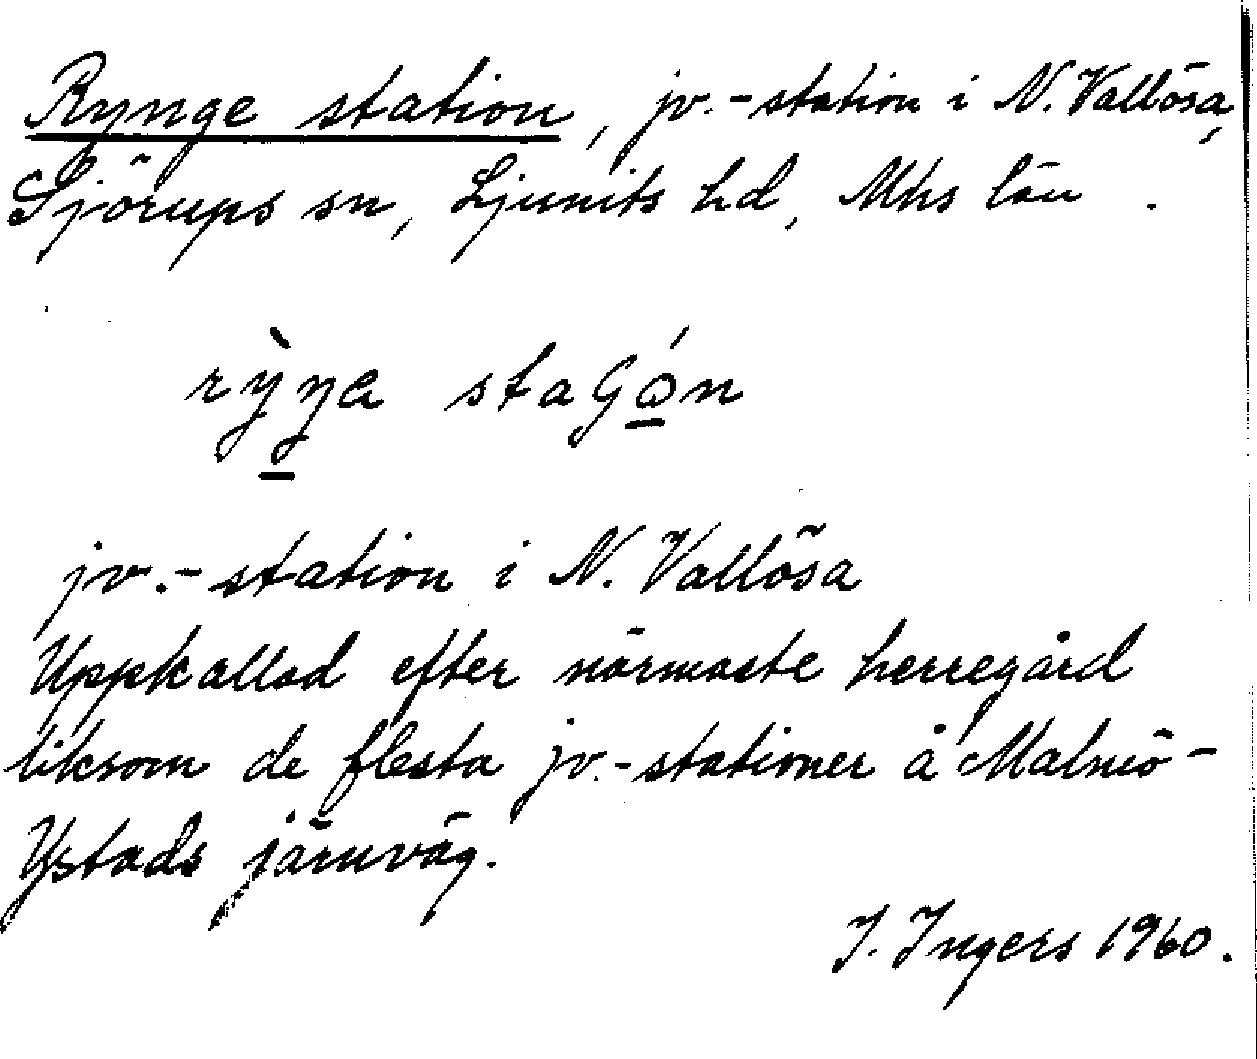 Rynge station, jv.-station i N. Vallösa,
Sjörups sn, Ljunits hd, Mhs län.
stagón
jv.-station i N. Vallösa
Uppkallad efter närmaste herregård
liksom de flesta jv.-stationer å Malmö-
Ystads järnväg.
I. Ingers 1960.